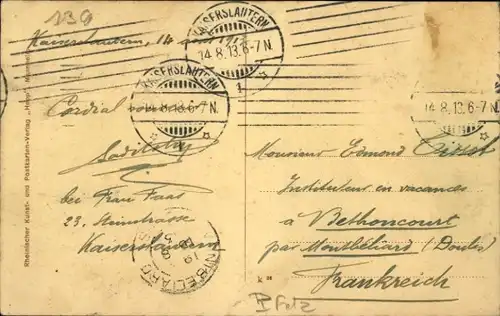 139
Kaiserslautern, 14
KAISERSLAUTERN
14.8.13.6-7N.
1
KAISERSLAUTERN
14.8.13.6-7N.
14.8.13.6-7N.
Cordial
bei Frau Faas
23, Steinstrasse
Kaiserslautern
MONTBELIARD
Monsieur Edmond
Instituteur en vacances
à Bethoncourt
par Montbéliard (Doubs)
Frankreich
Pfalz
Rheinischer Kunst- und Postkarten-Verlag